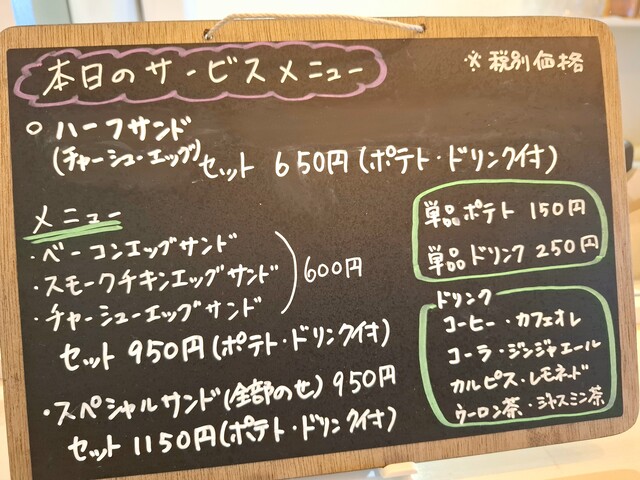 本日のサービスメニュー
※税別価格
○ハーフサンド
(チャーシューエッグ)
セット 650円(ポテト・ドリンク付)
メニュー
・ベーコンエッグサンド
・スモークチキンエッグサンド
・チャーシューエッグサンド
600円
セット 950円(ポテト・ドリンク付)
・スペシャルサンド(全部のせ) 950円
セット 1150円(ポテト・ドリンク付)
単品ポテト 150円
単品ドリンク 250円
ドリンク
コーヒー・カフェオレ
コーラ・ジンジャエール
カルピス・レモネード
ウーロン茶・ジャスミン茶